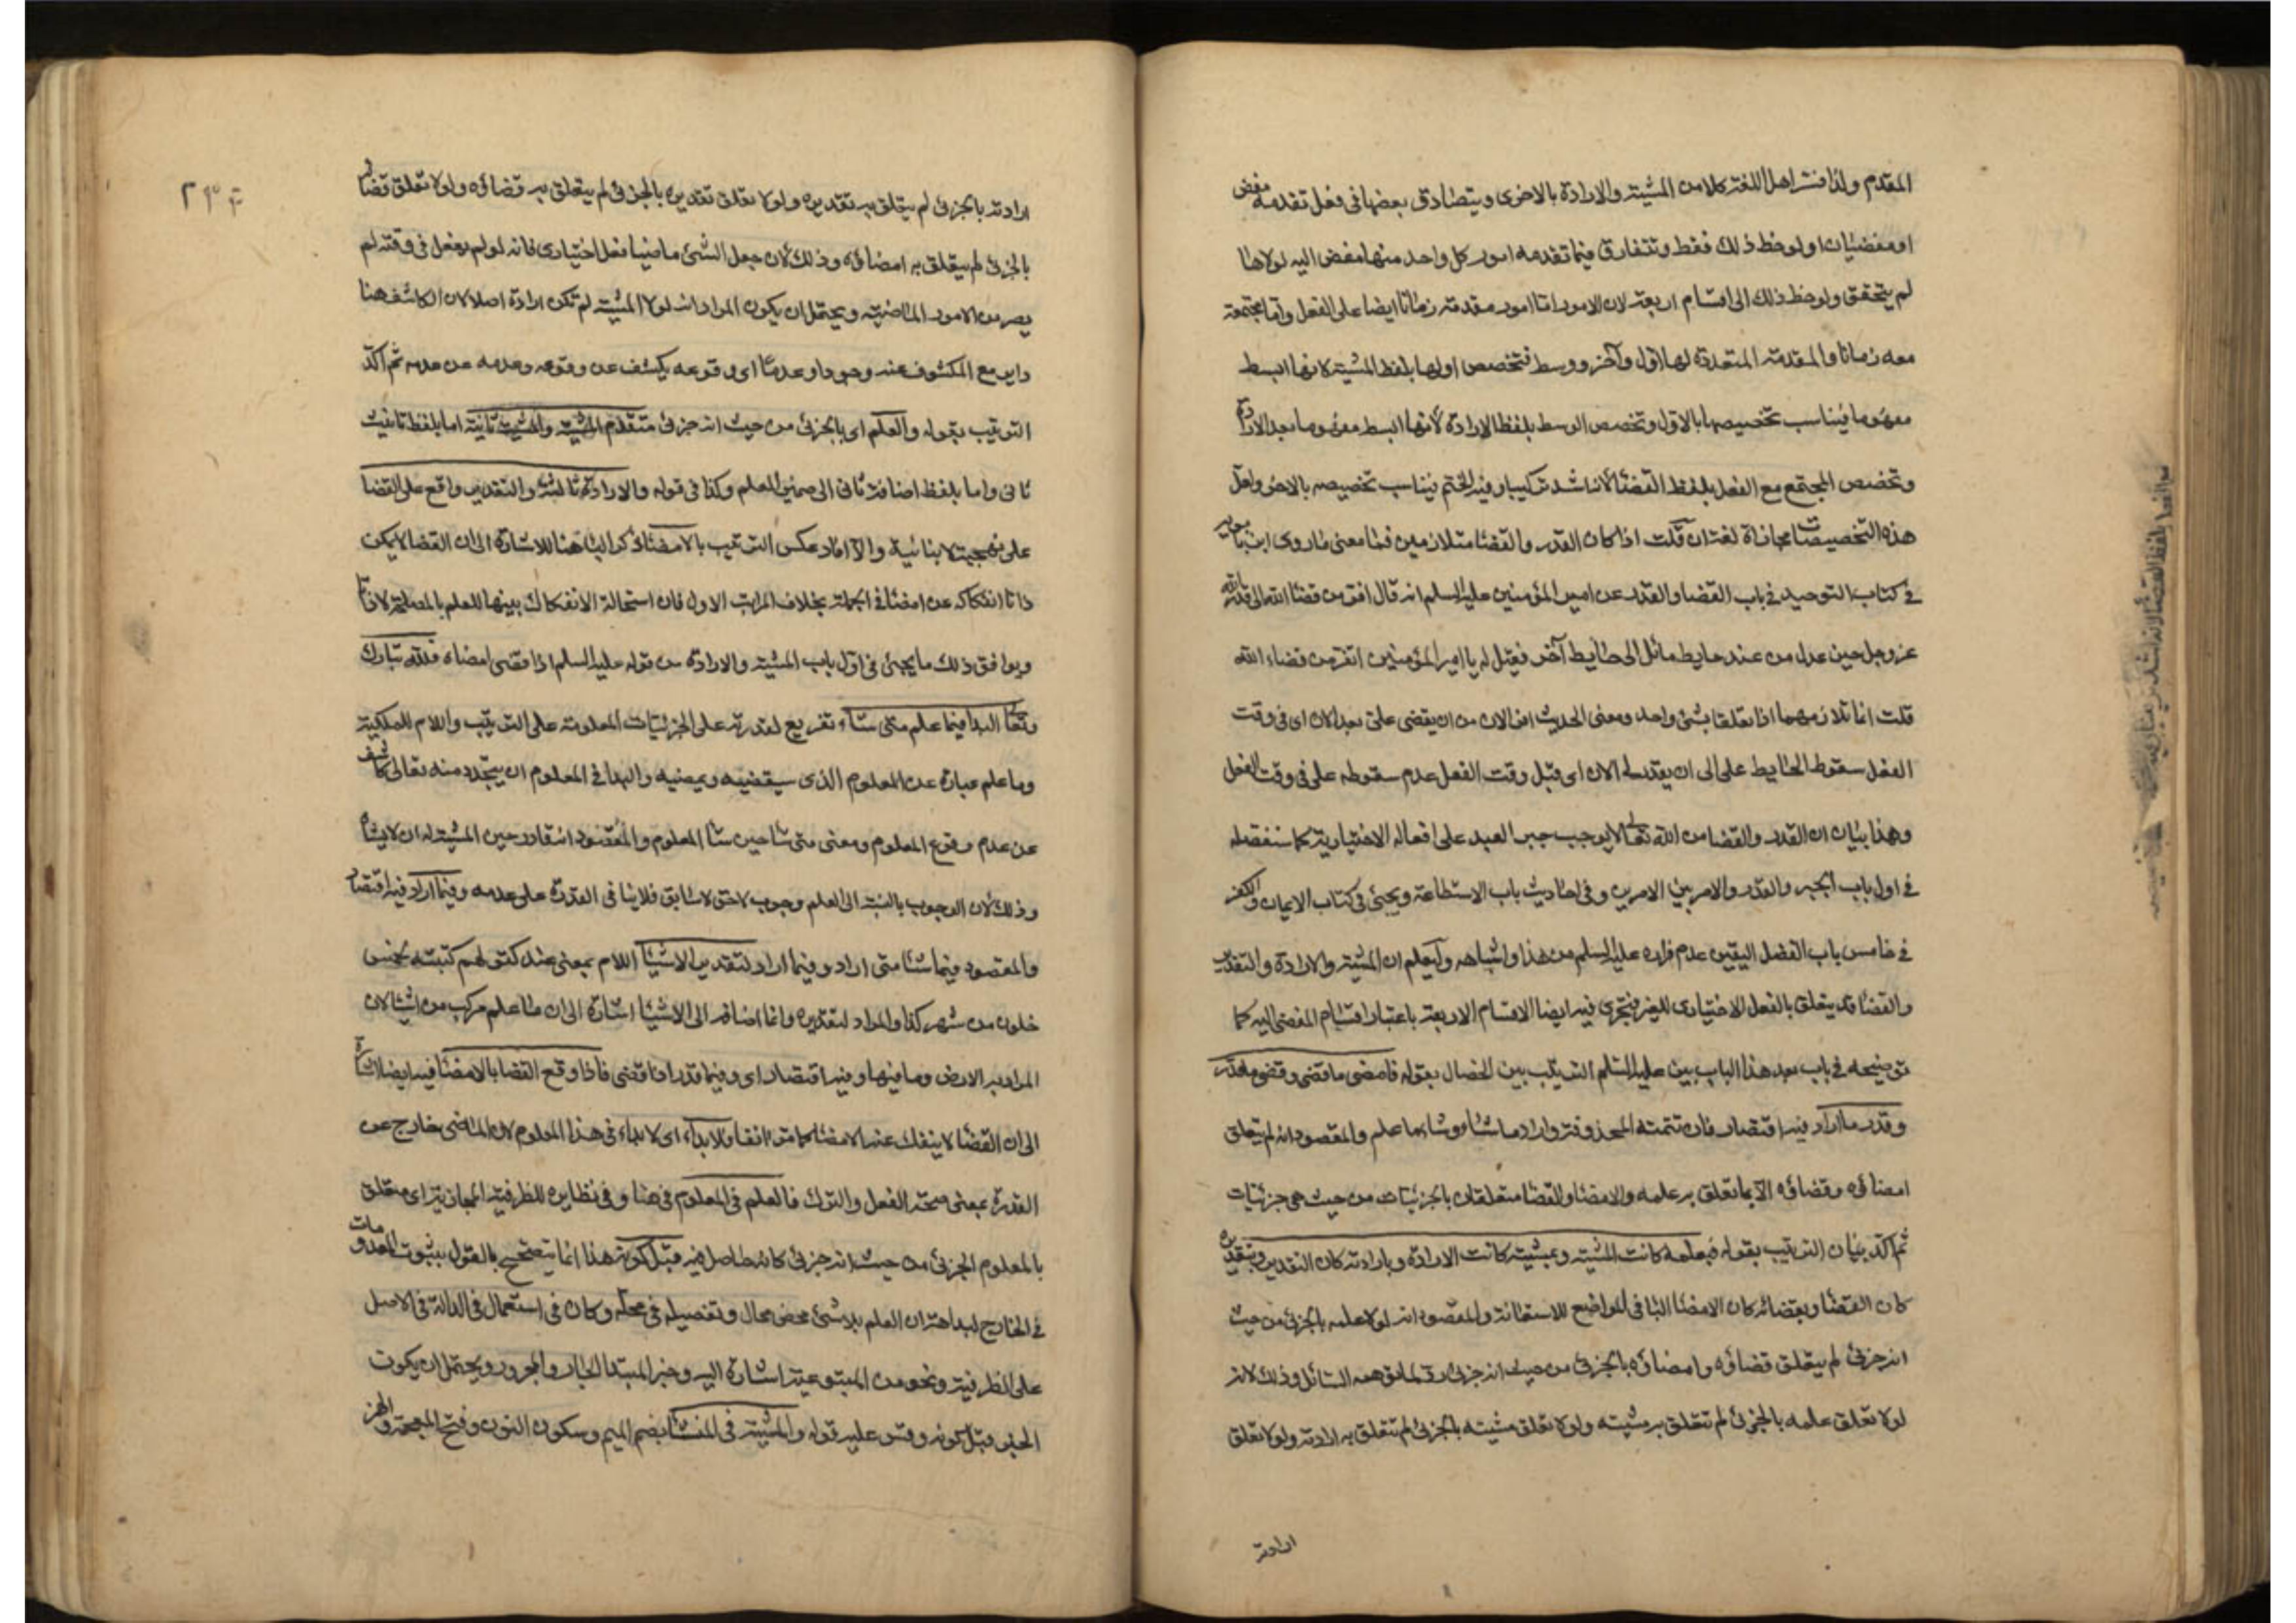 المقدم ولذا فسّر اهل اللغة كلا من المشية والارادة بالاخرى ويتصادق بعضها فى فعل تقدمه مفض
او مفضيان او لوحظ ذلك فقط وتتفارق فيما تقدمه امور كل واحد منها مفض اليه لولاها
لم يتحقق ولوحظ ذلك الى اقسام اربعة لان الامور اما امور مقدمة زمانا ايضا على الفعل واما مجتمعة
معه زمانا والمقدمة المتعددة لها اول وآخر ووسط فتخصص اولها بلفظ المشية لانها ابسط
مفهوما فيناسب تخصيصها بالاول وتخصص الوسط بلفظ الارادة لانها ابسط مفهوما بعد الارادة
وتخصص المجتمع مع الفعل بلفظ القضا لانه اشد تركيبا وفيه الختم فيناسب تخصيصه بالاخر ولعل
هذه التخصيصات مجازاة لغة ان قلت اذا كان القدر والقضا متلازمين فما معنى ما روى ابن بابويه
فى كتاب التوحيد فى باب القضا والقدر عن امير المؤمنين عليه السلم انه قال افر من قضا الله الى قدر الله
عز وجل حين عدل من عند حايط مائل الى حايط آخر فقيل له يا امير المؤمنين اتفر من قضاء الله
قلت انما تلازمهما اذا تعلقا بشئ واحد ومعنى الحديث افر الان من ان يقضى على بعد الان اى فى وقت
الفعل سقوط الحايط على الى ان يقدر له الان اى قبل وقت الفعل عدم سقوطه على فى وقت الفعل
وهذا بيان ان القدر والقضا من الله تعالى لا يوجب جبر العبد على افعاله الاختيارية كما سنفصله
فى اول باب الجبر والقدر والامر بين الامرين وفى احاديث باب الاستطاعة ويجئ فى كتاب الايمان والكفر
فى خامس باب الفضل اليقين عدم فراره عليه السلم من هذا واشباهه وليعلم ان المشية والارادة والتقدير
والقضا قد يتعلق بالفعل الاختيارى للغير فيجرى فيه ايضا الاقسام الاربعة باعتبار اقسام المفضى اليه كما
توضيحه فى باب بعد هذا الباب بين عليه السلم الترتيب بين الخصال بقوله فامضى ما قضى وقضى ما قدر
وقدر ما اراد فيه اقتصار فان تتمته المحذوفة واراد ما شاء وشاء ما علم والمقصود انه لم يتعلق
امضاؤه وقضاؤه الا بما تعلق به علمه والامضا والقضا متعلقان بالجزئيات من حيث هى جزئيات
ثم اكد بيان الترتيب بقوله فبعلمه كانت المشية وبمشيته كانت الارادة وبارادته كان التقدير وبتقديره
كان القضا وبقضائه كان الامضا البا فى المواضع للاستعانة والمقصود انه لولا علمه بالجزئى من حيث
انه جزئى لم يتعلق قضاؤه وامضاؤه بالجزئى من حيث انه جزئى السائل وذلك لانه
لولا تعلق علمه بالجزئى لم تتعلق به مشيته ولولا تعلق مشيته بالجزئى لم تتعلق به ارادته ولولا تعلق
ارادته
ارادته بالجزئى لم يتعلق به تقديره ولولا تعلق تقديره بالجزئى لم يتعلق به قضاؤه ولولا تعلق قضائه
بالجزئى لم يتعلق به امضاؤه وذلك لان جعل الشئ ماضيا فعل اختيارى فانه لو لم يفعل فى وقته لم
يصر من الامور الماضية ويحتمل ان يكون المراد انه لولا المشية لم تكن ارادة اصلا لان الكاشف هنا
داير مع المكشوف عنه وجودا وعدما اى وقوعه يكشف عن وقوعه وعدمه عن عدمه ثم اكد
الترتيب بقوله والعلم اى بالجزئى من حيث انه جزئى متقدم المشية والمشية ثانية اما بلفظ تانيث
ثانى واما بلفظ اضافة ثانى الى ضمير العلم وكذا فى قوله والارادة ثالثة والتقدير واقع على القضا
على نهج لابنائية والا اراد عكس الترتيب بالامضا ذكر البا هنا للاشارة الى ان القضا لا يمكن
ذاتا انفكاكه عن امضا فى الجملة بخلاف المراتب الاول فان استحالة الانفكاك بينها للعلم بالمصلحة لا ذاتا
ويوافق ذلك ما يجئ فى اول باب المشية والارادة من قوله عليه السلم اذا قضى امضاه فلله تبارك
وتعالى البدا فيما علم متى شاء تفريع لقدرته على الجزئيات المعلومة على الترتيب واللام للملكية
وما علم عبارة عن المعلوم الذى سيقضيه ويمضيه والبدا فى المعلوم ان يتجدد منه تعالى كاشف
عن عدم وقوع المعلوم ومعنى متى شا حين شا المعلوم والمقصود انه قادر حين المشية له ان لا يشاه
وذلك لان الوجوب بالنسبة الى العلم وجوب لاحق لا سابق فلا ينافى القدرة على عدمه وفيما اراد فيه اقتصار
والمقصود فيما شا متى اراد وفيما اراد لتقدير الاشيا اللام بمعنى عند كقولهم كتبته لخمس
خلون من شهر كذا والمراد لتقديره وانما اضافه الى الاشيا اشارة الى ان ما علم مركب من اشيا لان
المراد به الارض وما فيها وفيه اقتصار اى وفيما قدر اذا قضى فاذا وقع القضا بالامضا فيه ايضا اشارة
الى ان القضا لا ينفك عنه الامضا كما مر انفا فلا بداء اى لا بداء فى هذا المعلوم لان الماضى خارج عن
القدرة بمعنى صحة الفعل والترك فالعلم فى المعلوم فى هنا وفى نظايره للظرفية المجازية اى متعلق
بالمعلوم الجزئى من حيث انه جزئى كانه حاصل فيه قبل كونه هذا انما يتصحح بالقول بثبوت المعدومات
فى الخارج لبداهة ان العلم بلا شئ محض محال وتفصيله فى محله وكان فى استعمال فى الدالة فى الاصل
على الظرفية ونحو من المتبوعية اشارة اليه وخبر المبتدا الجار والمجرور ويحتمل ان يكون
الخبر قبل كونه وقس عليه قوله والمشية فى المنشا بضم الميم وسكون النون وفتح المعجمة والهمز